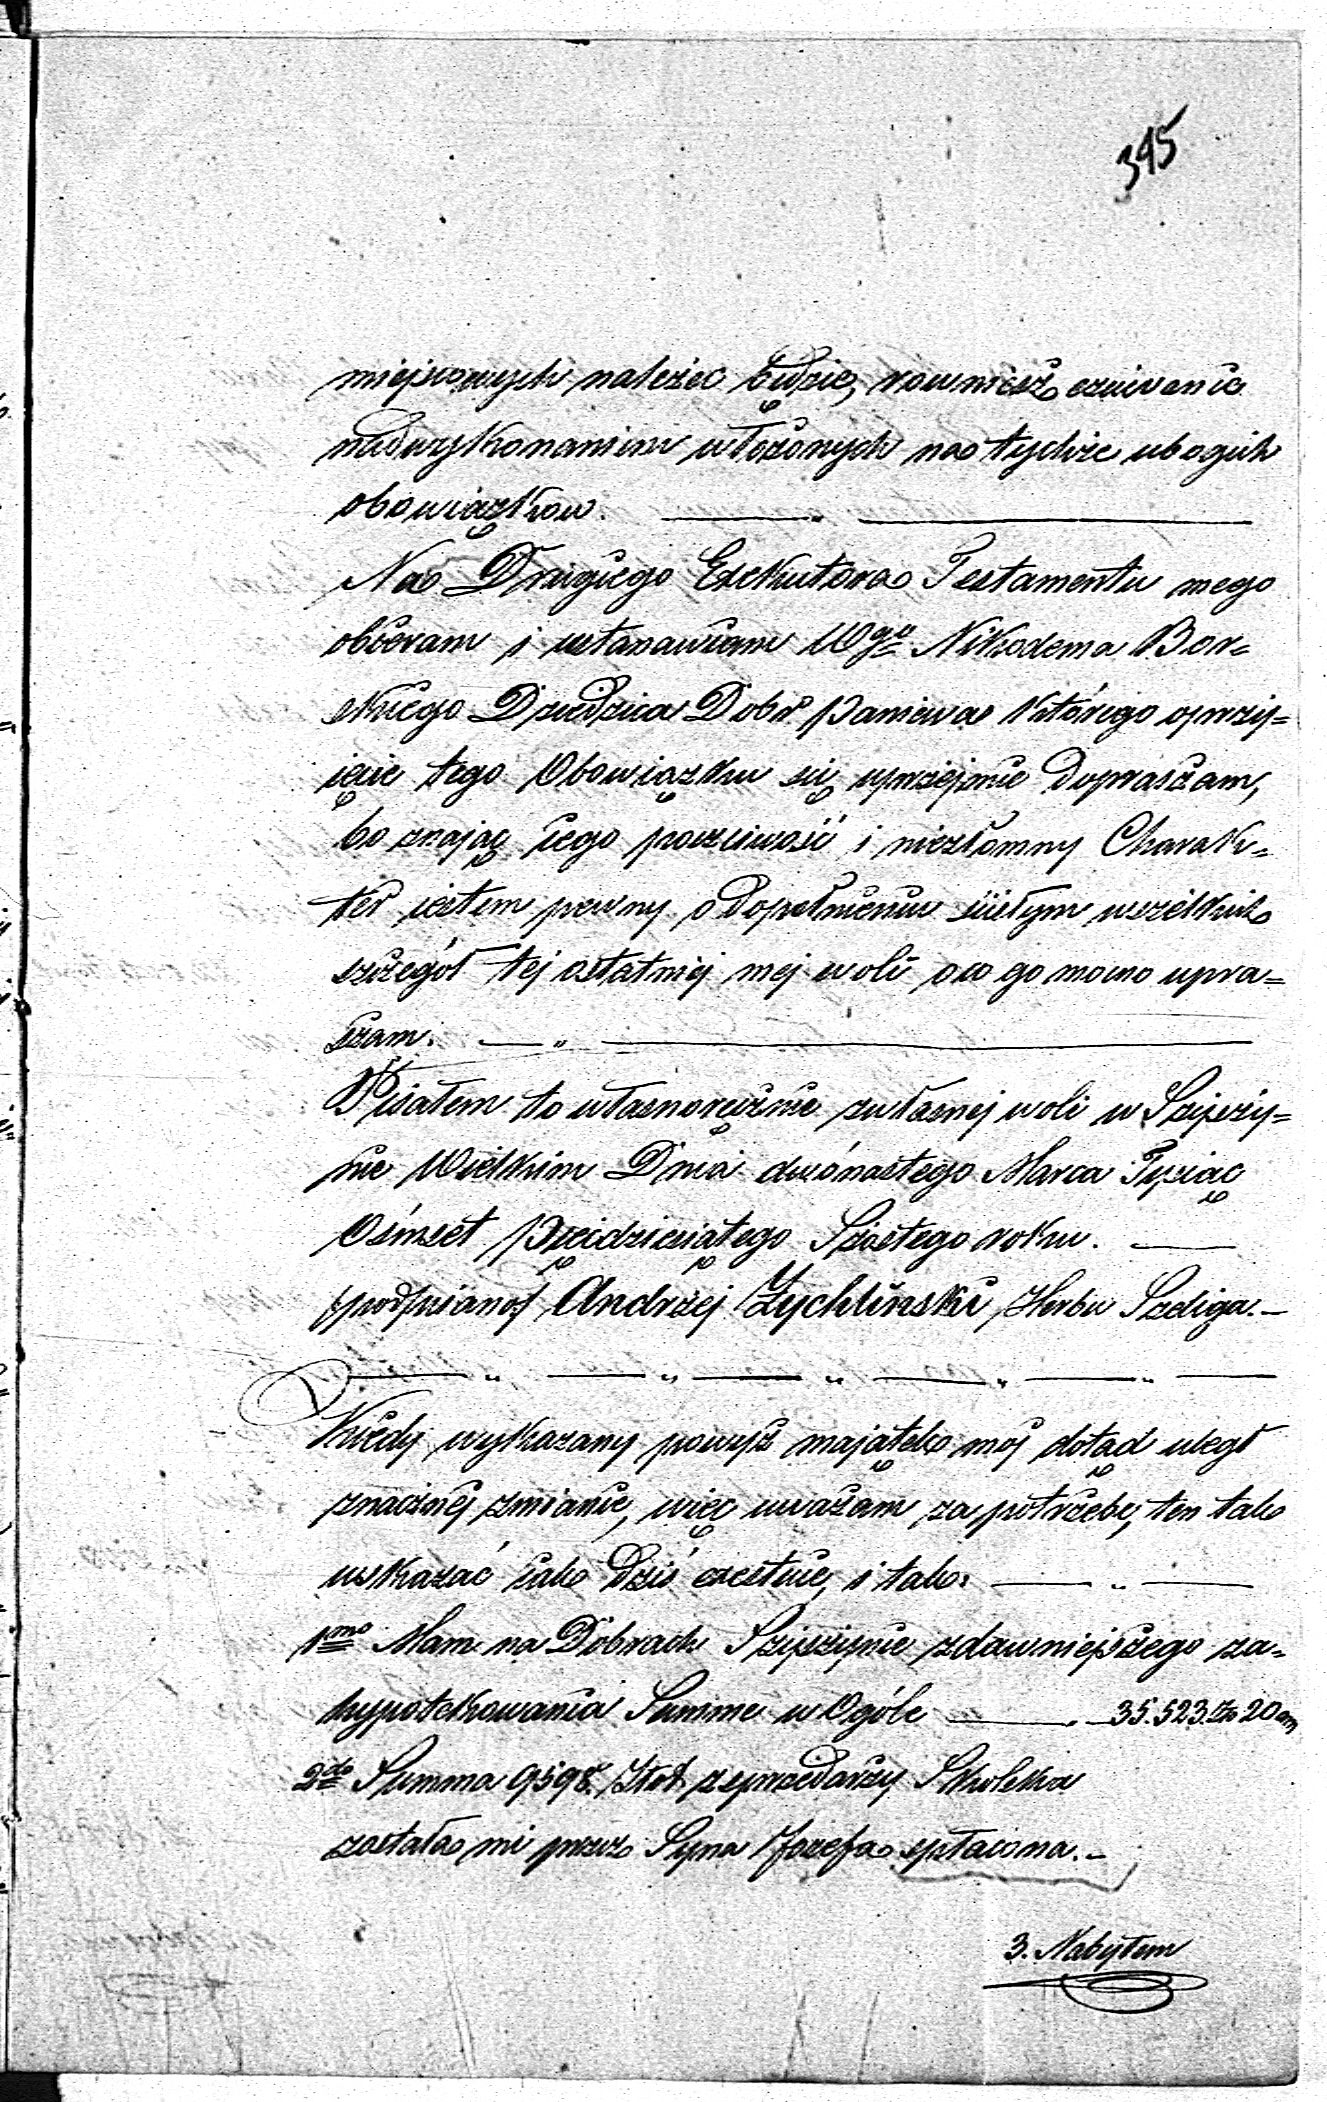 345
miejscowych należec będzie, rownież czuwanie
nad wykonaniem włożonych na tychże ubogich
obowiązkow.
Na Drugiego Exekutora Testamentu mego
obieram i ustanawiam Wgo Nikodema Bor-
skiego Dziedzica Dobr Paniewa którego o przy-
ięcie tego Obowiązku się uprzejmie dopraszam,
bo znając iego poczciwość i niezłomny Charak-
ter iestem pewny o dopełnieniu ścisłym wszelkich
szczegół tej ostatniej mej woli o co go mocno upra-
szam.
Pisałem to własnoręcznie z własnej woli w Szyszy-
nie Wielkim Dnia dwónastego Marca Tysiąc
Ośmset Pięcidziesiątego Szóstego roku.
/podpisano/ Andrzej Zychliński Herbu Szeliga.
Kiedy wykazany powyż majątek moj dotąd uległ
znacznej zmianie, więc uważam za potrzebę, ten tak
wskazać iak dziś exestuie, i tak:
1mo Mam na Dobrach Szyszynie z dawniejszego za-
hypotekowania Summe w Ogóle 35.523. Zło 20 gr
2do Summa 9598. Złot z sprzedarzy Skulska
została mi przez Syna Jozefa spłacona.
3. Nabyłem